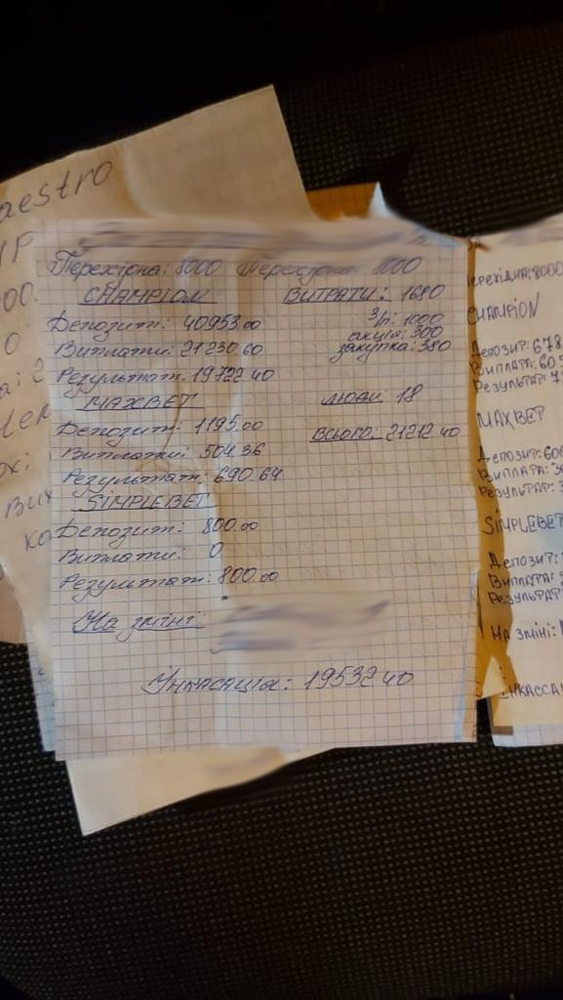 aestro
Перехідна: 8000 Перехідна 8000
CHAMPION
Депозит: 40953.00
Виплати: 21230.60
Результат: 19722.40
MAXBET
Депозит: 1195.00
Виплати: 504.36
Результат: 690.64
SIMPLEBET
Депозит: 800.00
Виплати: 0
Результат: 800.00
На зміні:
ВИТРАТИ: 1680
З/п: 1000
акція: 300
закупка: 380
ЛЮДИ 18
ВСЬОГО. 21212.40
Інкасація: 19532.40
CHAMPION
Депозит: 678
Виплата: 605
Результат:
MAXBET
Депозит: 606
Виплата:
Результат:
SIMPLEBET
Депозит:
Виплата:
Результат
На зміні: